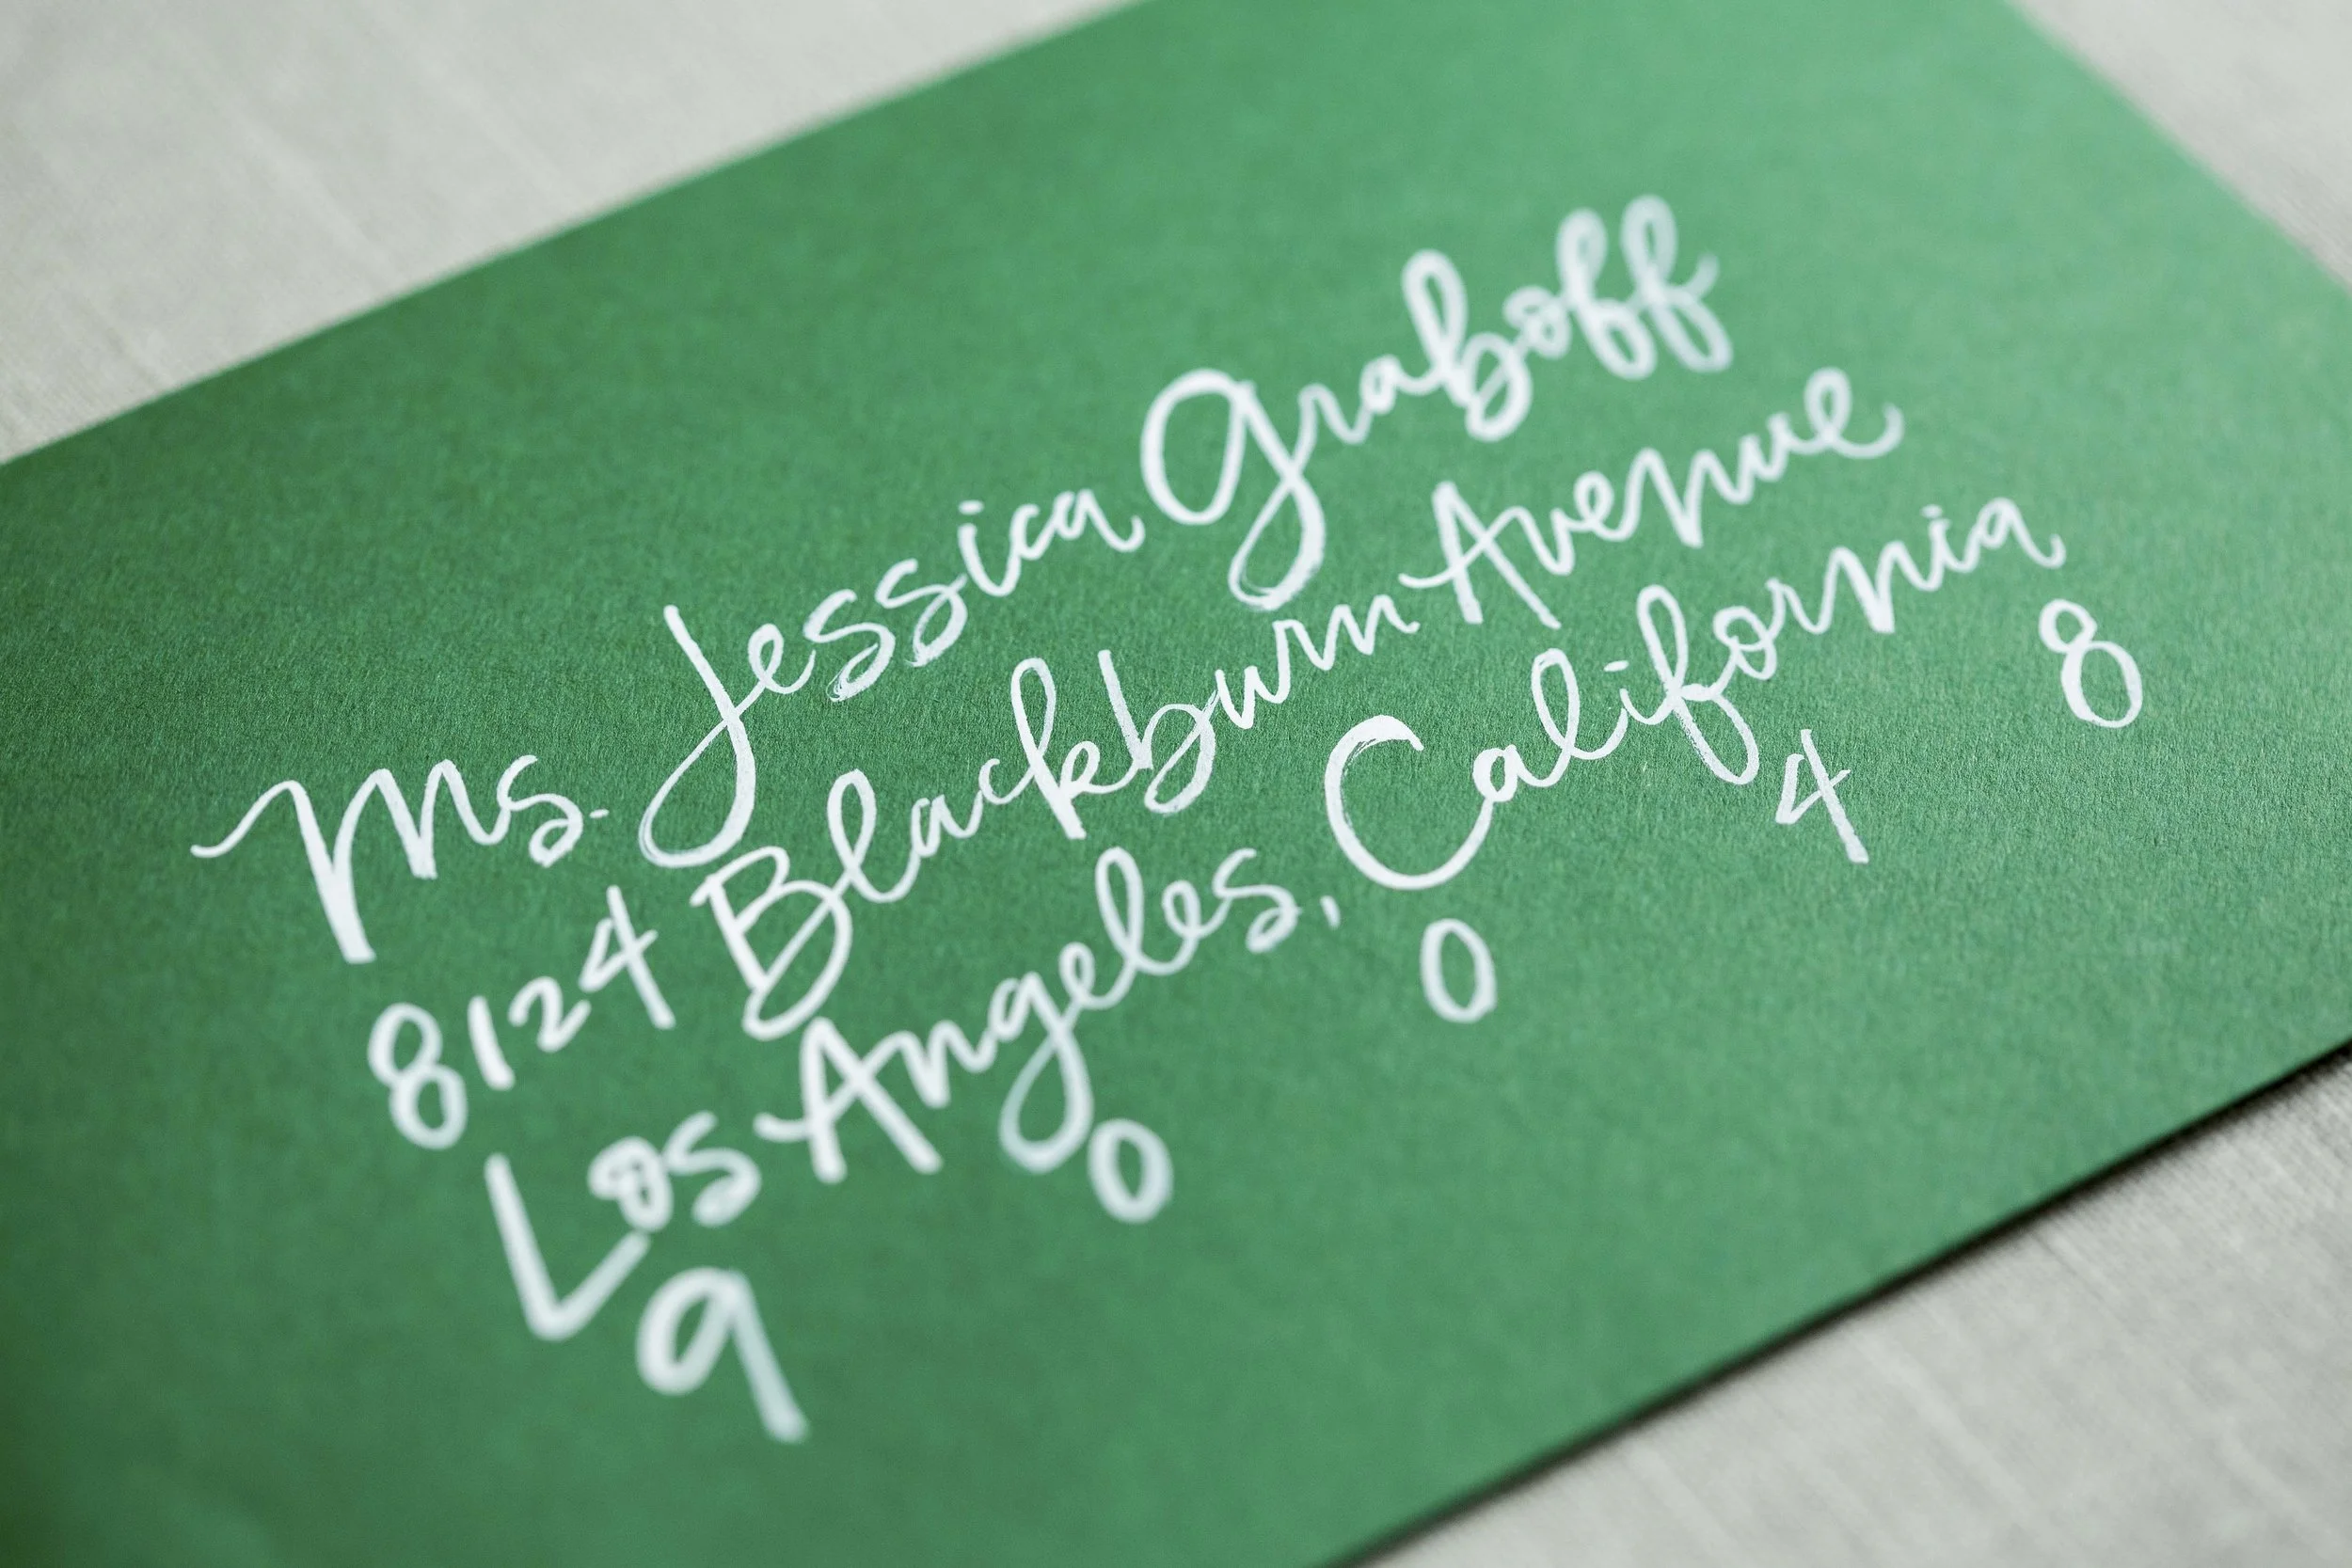 Ms. Jessica Graboff
8124 Blackburn Avenue
Los Angeles, California
9 0 0 4 8